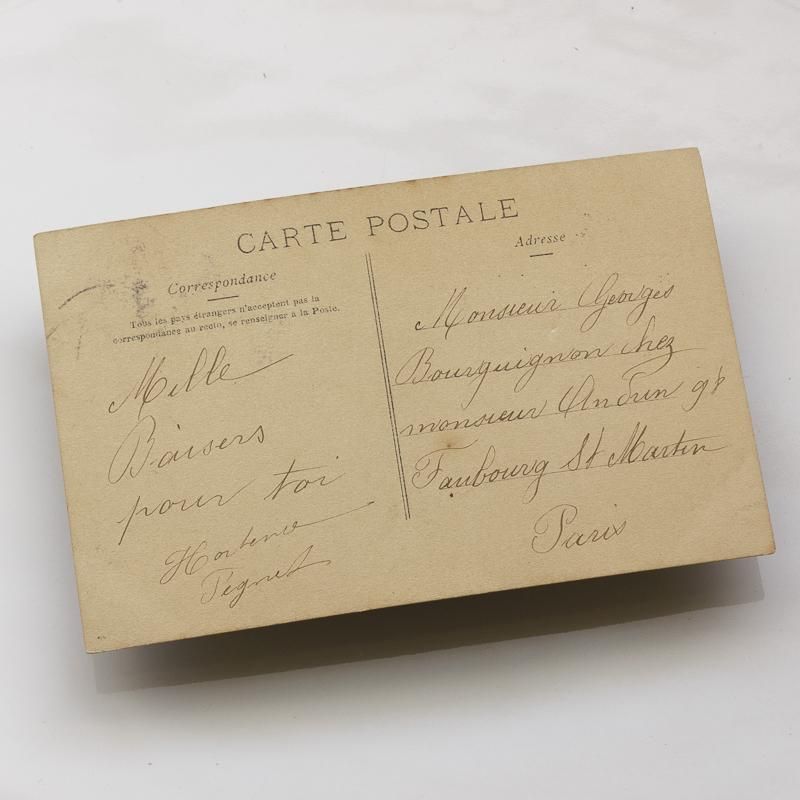 CARTE POSTALE
Correspondance
Tous les pays étrangers n'acceptent pas la
correspondance au recto, se renseigner à la Poste.
Mille
Baisers
pour toi
Hortence
Adresse
Monsieur Georges
Bourguignon chez
monsieur
Faubourg St Martin
Paris